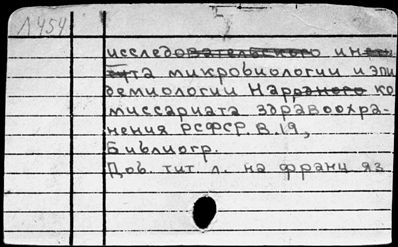 Л454
исследовательского инсти
тута микробиологии и эпи
демиологии Народного ко
миссариата здравоохра-
нения РСФСР В.19,
Библиогр.
Доб. тит. л. на франц яз